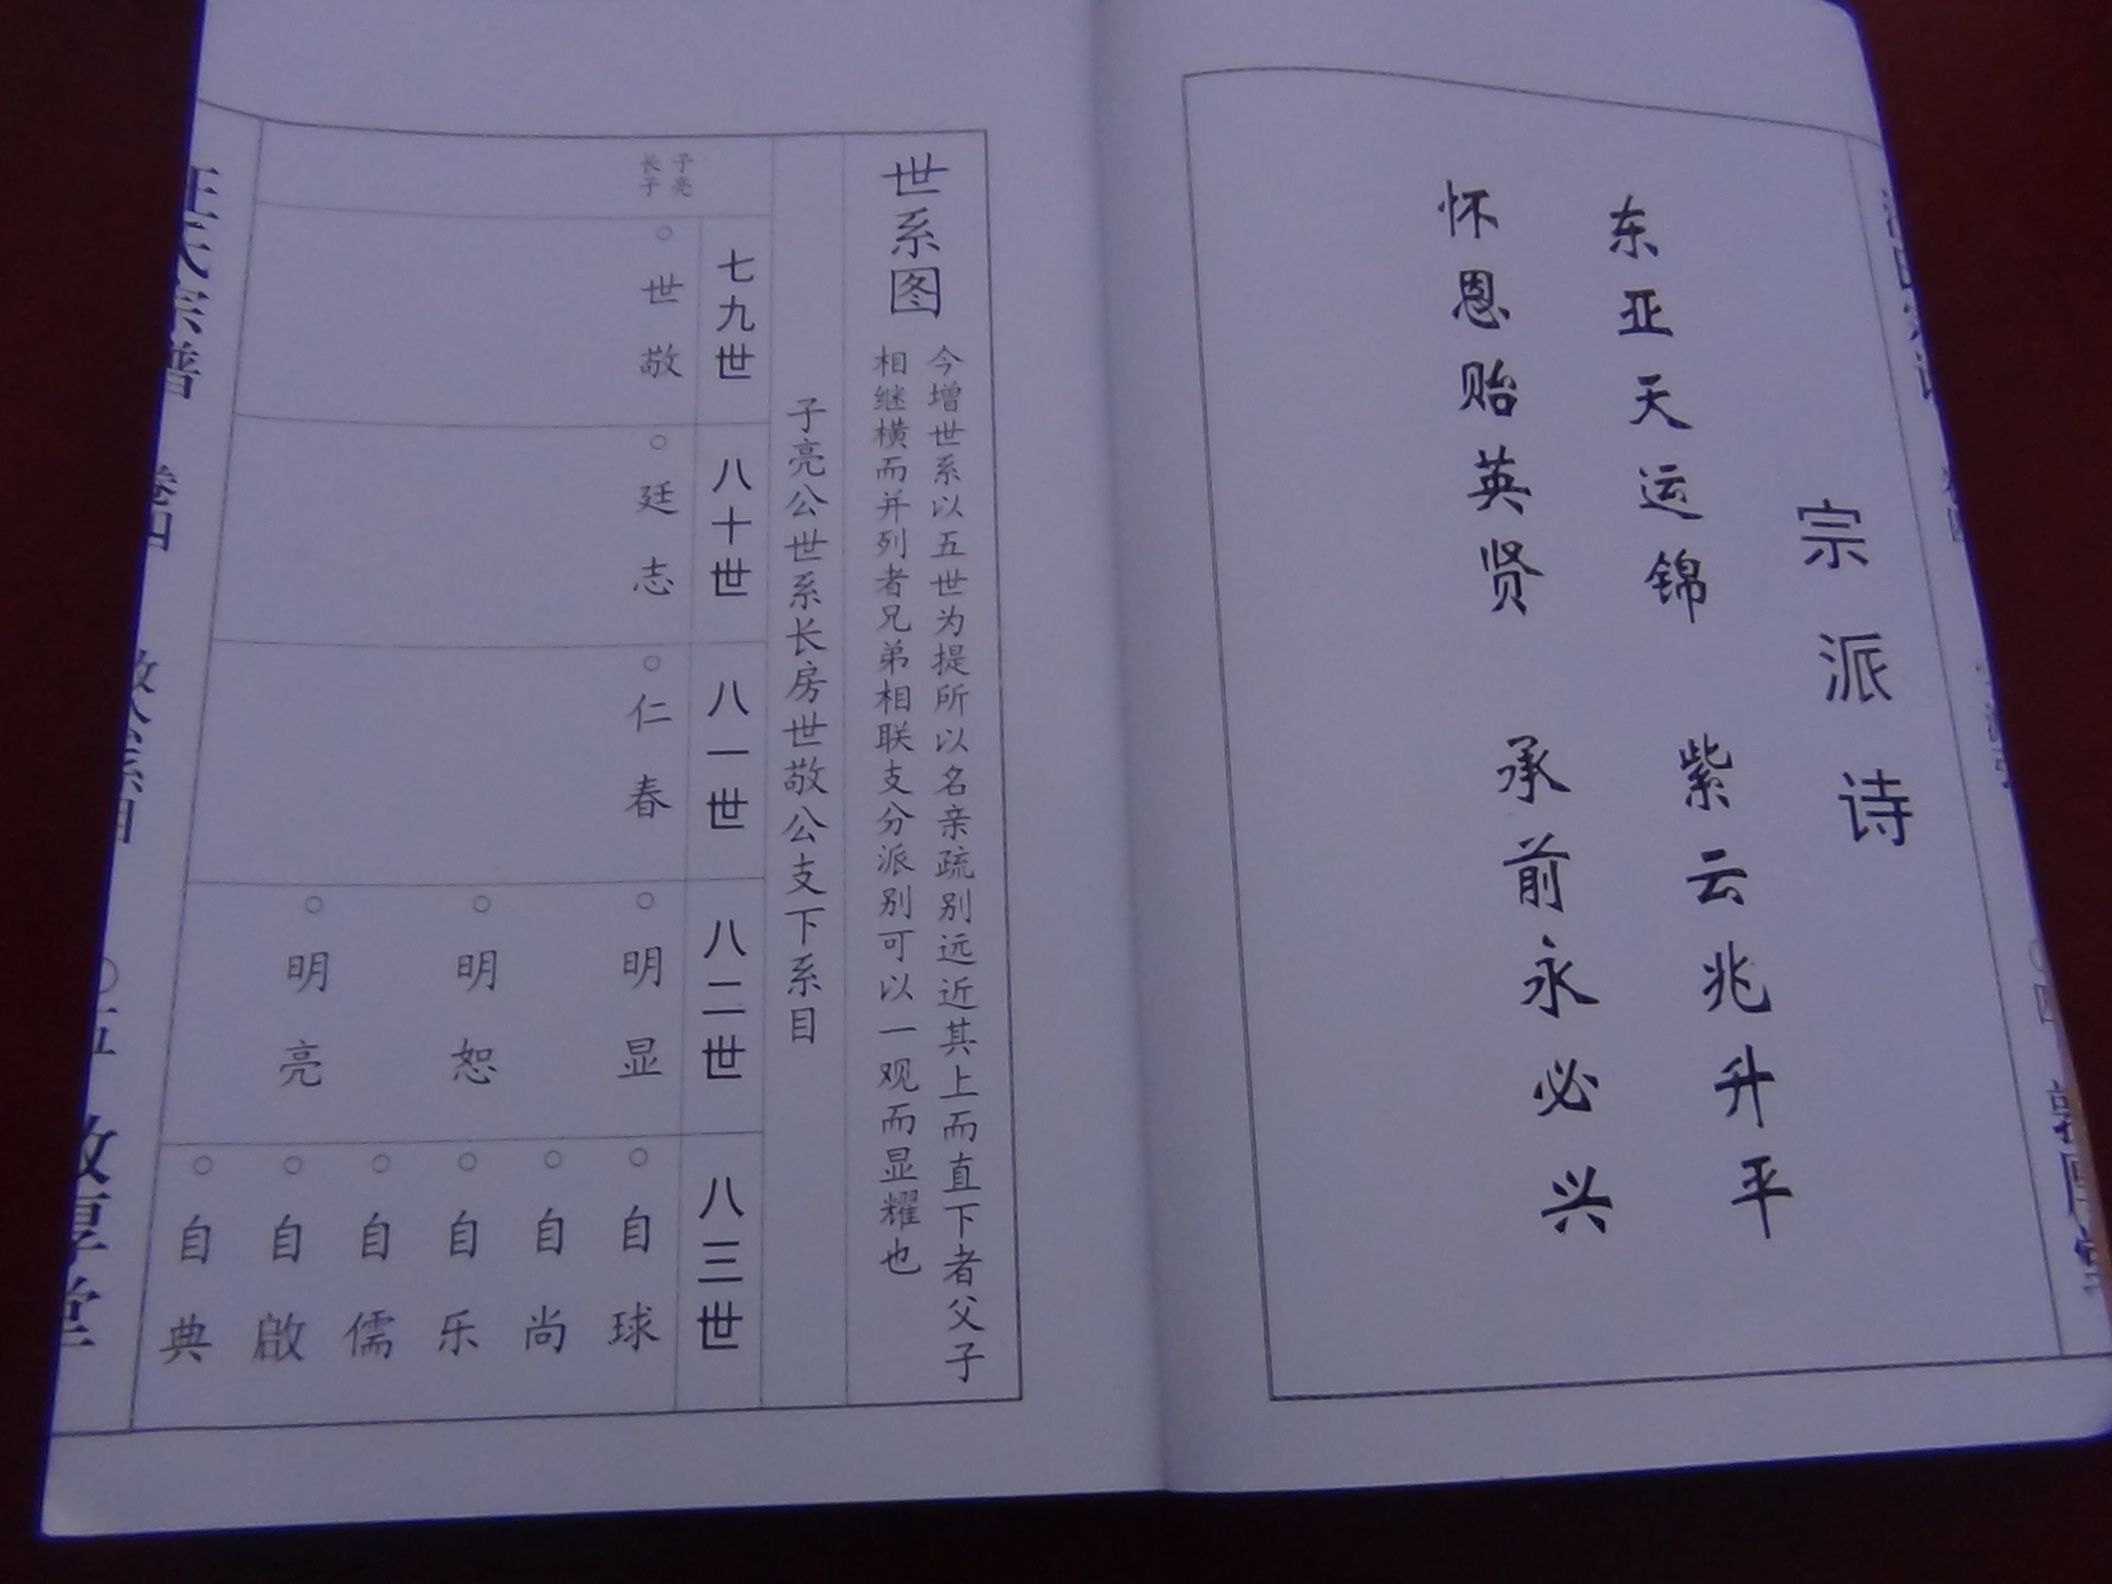 宗派诗
东亚天运锦 紫云兆升平
怀恩贻英贤 承前永必兴
世系图
今增世系以五世为提所以名亲疏别远近其上而直下者父子
相继横而并列者兄弟相联支分派别可以一观而显耀也
子亮公世系长房世敬公支下系目
七九世
八十世
八一世
八二世
八三世
子亮
长子
世敬
廷志
仁春
明显
明恕
明亮
自球
自尚
自乐
自儒
自啟
自典
汪氏宗谱 卷四